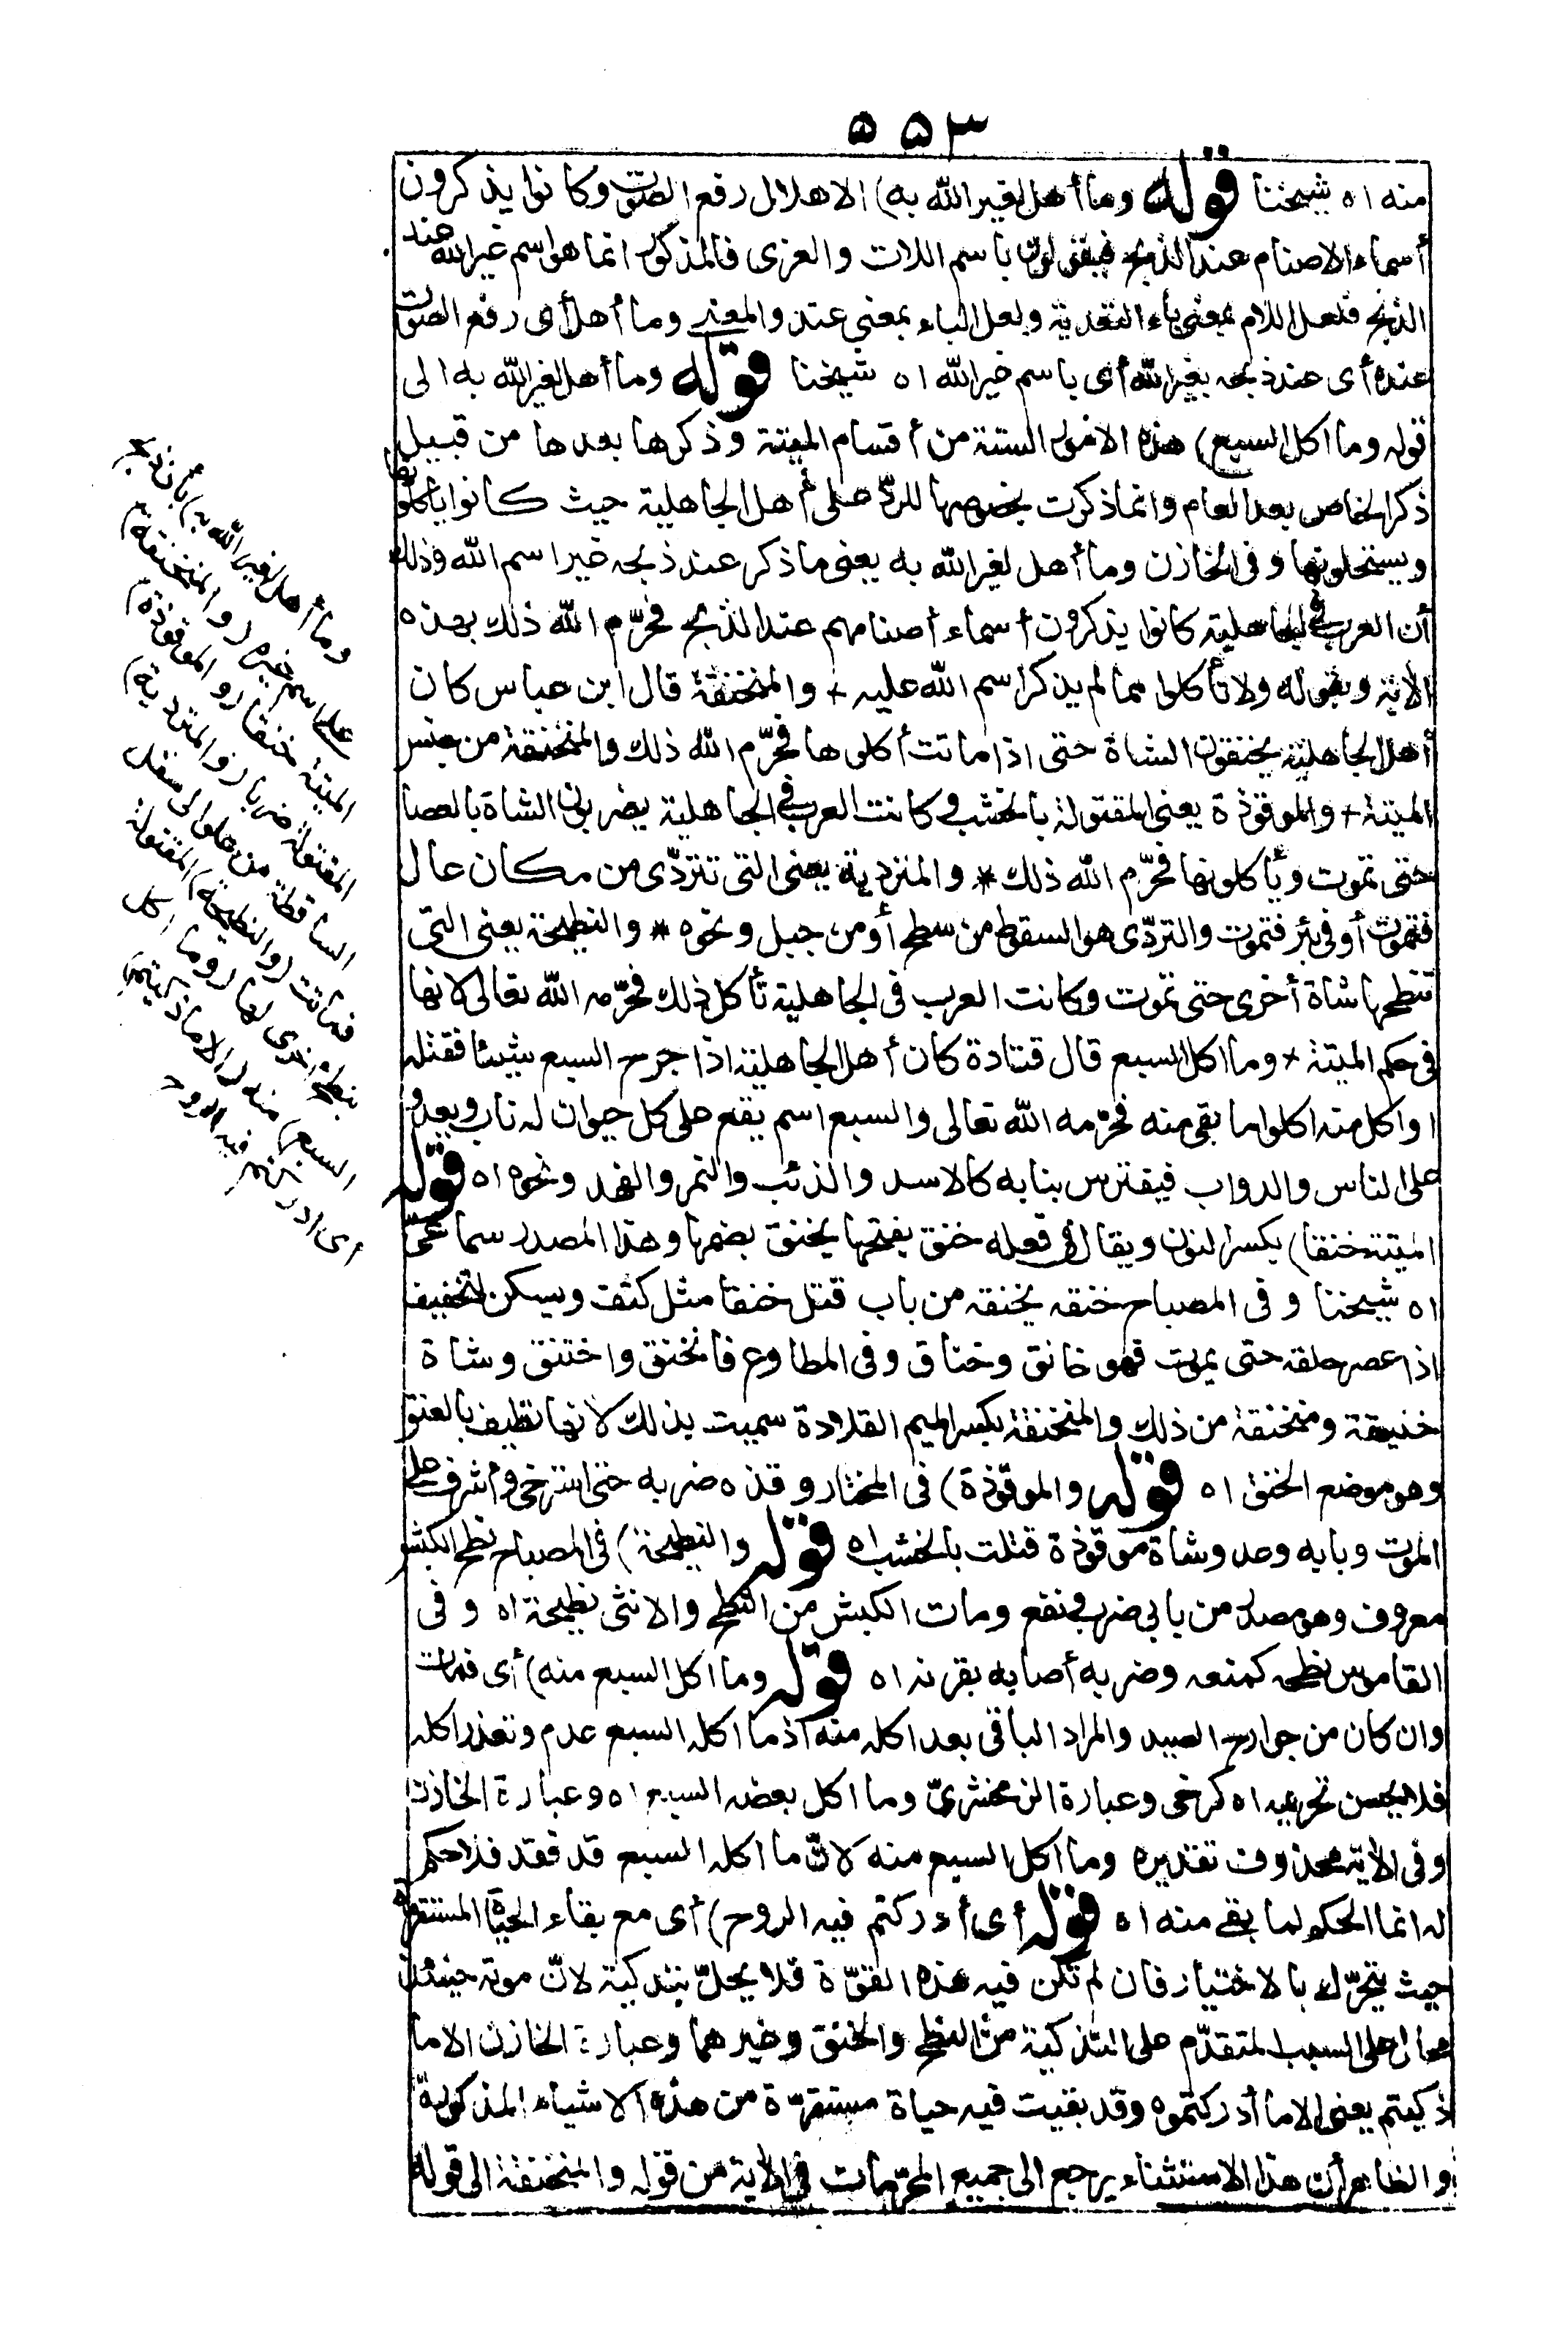 ٥٥٣
منه اه شيخنا قوله وما أهل لغير الله به) الاهلال رفع الصوت وكانوا يذكرون
أسماء الاصنام عند الذبح فيقولون باسم اللات والعزى فالمذكور انما هو اسم غير الله عند
الذبح فلعل اللام بمعنى باء التعدية ولعل الباء بمعنى عند والمعنى وما أهل أى رفع الصوت
عنده أى عند ذبحه بغير الله أى باسم غير الله اه شيخنا قوله وما أهل لغير الله به الى
قوله وما اكل السبع) هذه الامور الستة من أقسام الميتة وذكرها بعدها من قبيل
ذكر الخاص بعد العام وانما ذكرت بخصوصها للردّ على أهل الجاهلية حيث كانوا يأكلونها
ويستحلونها وفى الخازن وما أهل لغير الله به يعنى ما ذكر عند ذبحه غير اسم الله وذلك
أن العرب فى الجاهلية كانوا يذكرون أسماء أصنامهم عند الذبح فحرّم الله ذلك بهذه
الآية وبقوله ولا تأكلوا مما لم يذكر اسم الله عليه + والمنخنقة قال ابن عباس كان
أهل الجاهلية يخنقون الشاة حتى اذا ماتت أكلوها فحرّم الله ذلك والمنخنقة من جنس
الميتة + والموقوذة يعنى المقتولة بالخشب وكانت العرب فى الجاهلية يضربون الشاة بالعصا
حتى تموت ويأكلونها فحرّم الله ذلك * والمتردية يعنى التى تتردّى من مكان عال
فتموت أو فى بئر فتموت والتردّى هو السقوط من سطح أو من جبل ونحوه * والنطيحة يعنى التى
تنطحها شاة أخرى حتى تموت وكانت العرب فى الجاهلية تأكل ذلك فحرّمه الله تعالى لانها
فى حكم الميتة + وما اكل السبع قال قتادة كان أهل الجاهلية اذا جرح السبع شيئا فقتله
او اكل منه اكلوا ما بقى منه فحرّمه الله تعالى والسبع اسم يقع على كل حيوان له ناب ويعدو
على الناس والدواب فيفترس بنابه كالاسد والذئب والنمر والفهد ونحوه اه قوله
الميتة خنقا) بكسر النون ويقال فى فعله خنق بفتحها يخنق بضمها وهذا المصدر سماعىّ
اه شيخنا وفى المصباح خنقه يخنقه من باب قتل خنقا مثل كتف ويسكن للتخفيف
اذا عصر حلقه حتى يموت فهو خانق وخناق وفى المطاوع فانخنق واختنق وشاة
خنيقة ومنخنقة من ذلك والمنخنقة بكسر الميم القلادة سميت بذلك لانها تطيف بالعنق
وهو موضع الخنق اه قوله والموقوذة) فى المختار وقذه ضربه حتى استرخى وأشرف على
الموت وبابه وعد وشاة موقوذة قتلت بالخشب اه قوله والنطيحة) فى المصباح نطح الكبش
معروف وهو مصدر من بابى ضرب ونفع ومات الكبش من النطح والانثى نطيحة اه وفى
القاموس نطحه كمنعه وضربه أصابه بقرنه اه قوله وما اكل السبع منه) أى فمات
وان كان من جوارح الصيد والمراد الباقى بعد اكله منه اذ ما اكله السبع عدم وتعذر اكله
فلا يحسن تحريمه اه كرخى وعبارة الزمخشرىّ وما اكل بعضه السبع اه وعبارة الخازن
وفى الآية محذوف تقديره وما اكل السبع منه لانّ ما اكله السبع قد فقد فلا حكم
له انما الحكم لما بقى منه اه قوله أى أدركتم فيه الروح) أى مع بقاء الحياة المستقرة
حيث يتحرّك بالاختيار فان لم تكن فيه هذه القوّة فلا يحلّ بتذكية لانّ موته حينئذ
محال على السبب المتقدّم على التذكية من النطح والخنق وغيرهما وعبارة الخازن الا ما
ذكيتم يعنى الا ما أدركتموه وقد بقيت فيه حياة مستقرّة من هذه الاشياء المذكورة
والظاهر أن هذا الاستثناء يرجع الى جميع المحرّمات فى الآية من قوله والمنخنقة الى قوله
وما أهل لغير الله به) بأن ذبح
على اسم غيره (والمنخنقة)
الميتة خنقا (والموقوذة)
المقتولة ضربا (والمتردية)
الساقطة من علو الى سفل
فماتت (والنطيحة) المقتولة
بنطح أخرى لها (وما اكل
السبع) منه (الا ما ذكيتم)
أى ادركتم فيه الروح